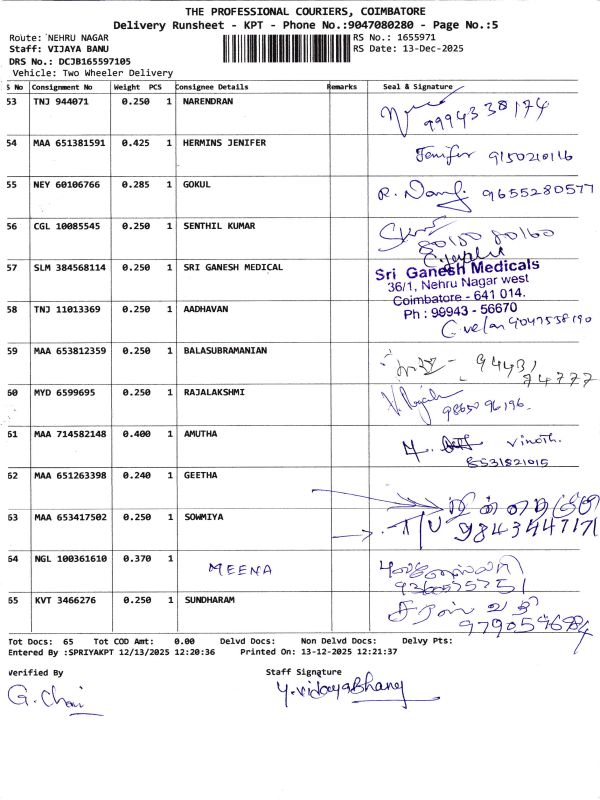 THE PROFESSIONAL COURIERS, COIMBATORE
Delivery Runsheet - KPT - Phone No.:9047080280 - Page No.:5
Route: NEHRU NAGAR
RS No.: 1655971
Staff: VIJAYA BANU
RS Date: 13-Dec-2025
DRS No.: DCJB165597105
Vehicle: Two Wheeler Delivery
S No Consignment No Weight PCS Consignee Details Remarks Seal & Signature
53 TNJ 944071 0.250 1 NARENDRAN 9994338174
54 MAA 651381591 0.425 1 HERMINS JENIFER Jenifer 9150210116
55 NEY 60106766 0.285 1 GOKUL R. 9655280577
56 CGL 10085545 0.250 1 SENTHIL KUMAR 80150 80160
57 SLM 384568114 0.250 1 SRI GANESH MEDICAL
Sri Ganesh Medicals
36/1, Nehru Nagar west
Coimbatore - 641 014.
Ph : 99943 - 56670
58 TNJ 11013369 0.250 1 AADHAVAN C. velan 9047538190
59 MAA 653812359 0.250 1 BALASUBRAMANIAN 94431
74777
60 MYD 6599695 0.250 1 RAJALAKSHMI 98650 96196
61 MAA 714582148 0.400 1 AMUTHA vinoth.
8531821015
62 MAA 651263398 0.240 1 GEETHA
63 MAA 653417502 0.250 1 SOWMIYA 9843544717
64 NGL 100361610 0.370 1 MEENA
65 KVT 3466276 0.250 1 SUNDHARAM
Tot Docs: 65 Tot COD Amt: 0.00 Delvd Docs: Non Delvd Docs: Delvy Pts:
Entered By :SPRIYAKPT 12/13/2025 12:20:36 Printed On: 13-12-2025 12:21:37
Verified By
Staff Signature
G. Chai
Y.vidayaBhanu